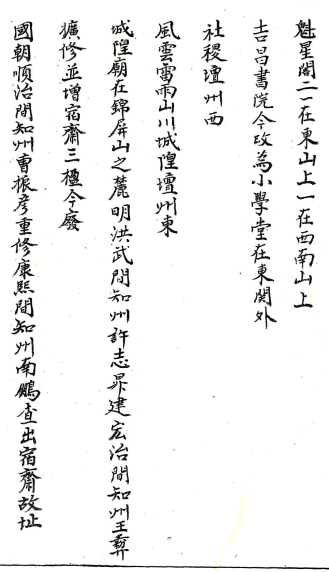 魁星閣二一在東山上一在西南山上
吉昌書院今改為小學堂在東関外
社稷壇州西
風雲雷雨山川城隍壇州東
城隍廟在錦屏山之麓明洪武間知州許志昇建宏治間知州王彝
擴修並增宿齋三楹今廢
國朝順治間知州曹振彥重修康熙間知州南鵬查出宿齋故址